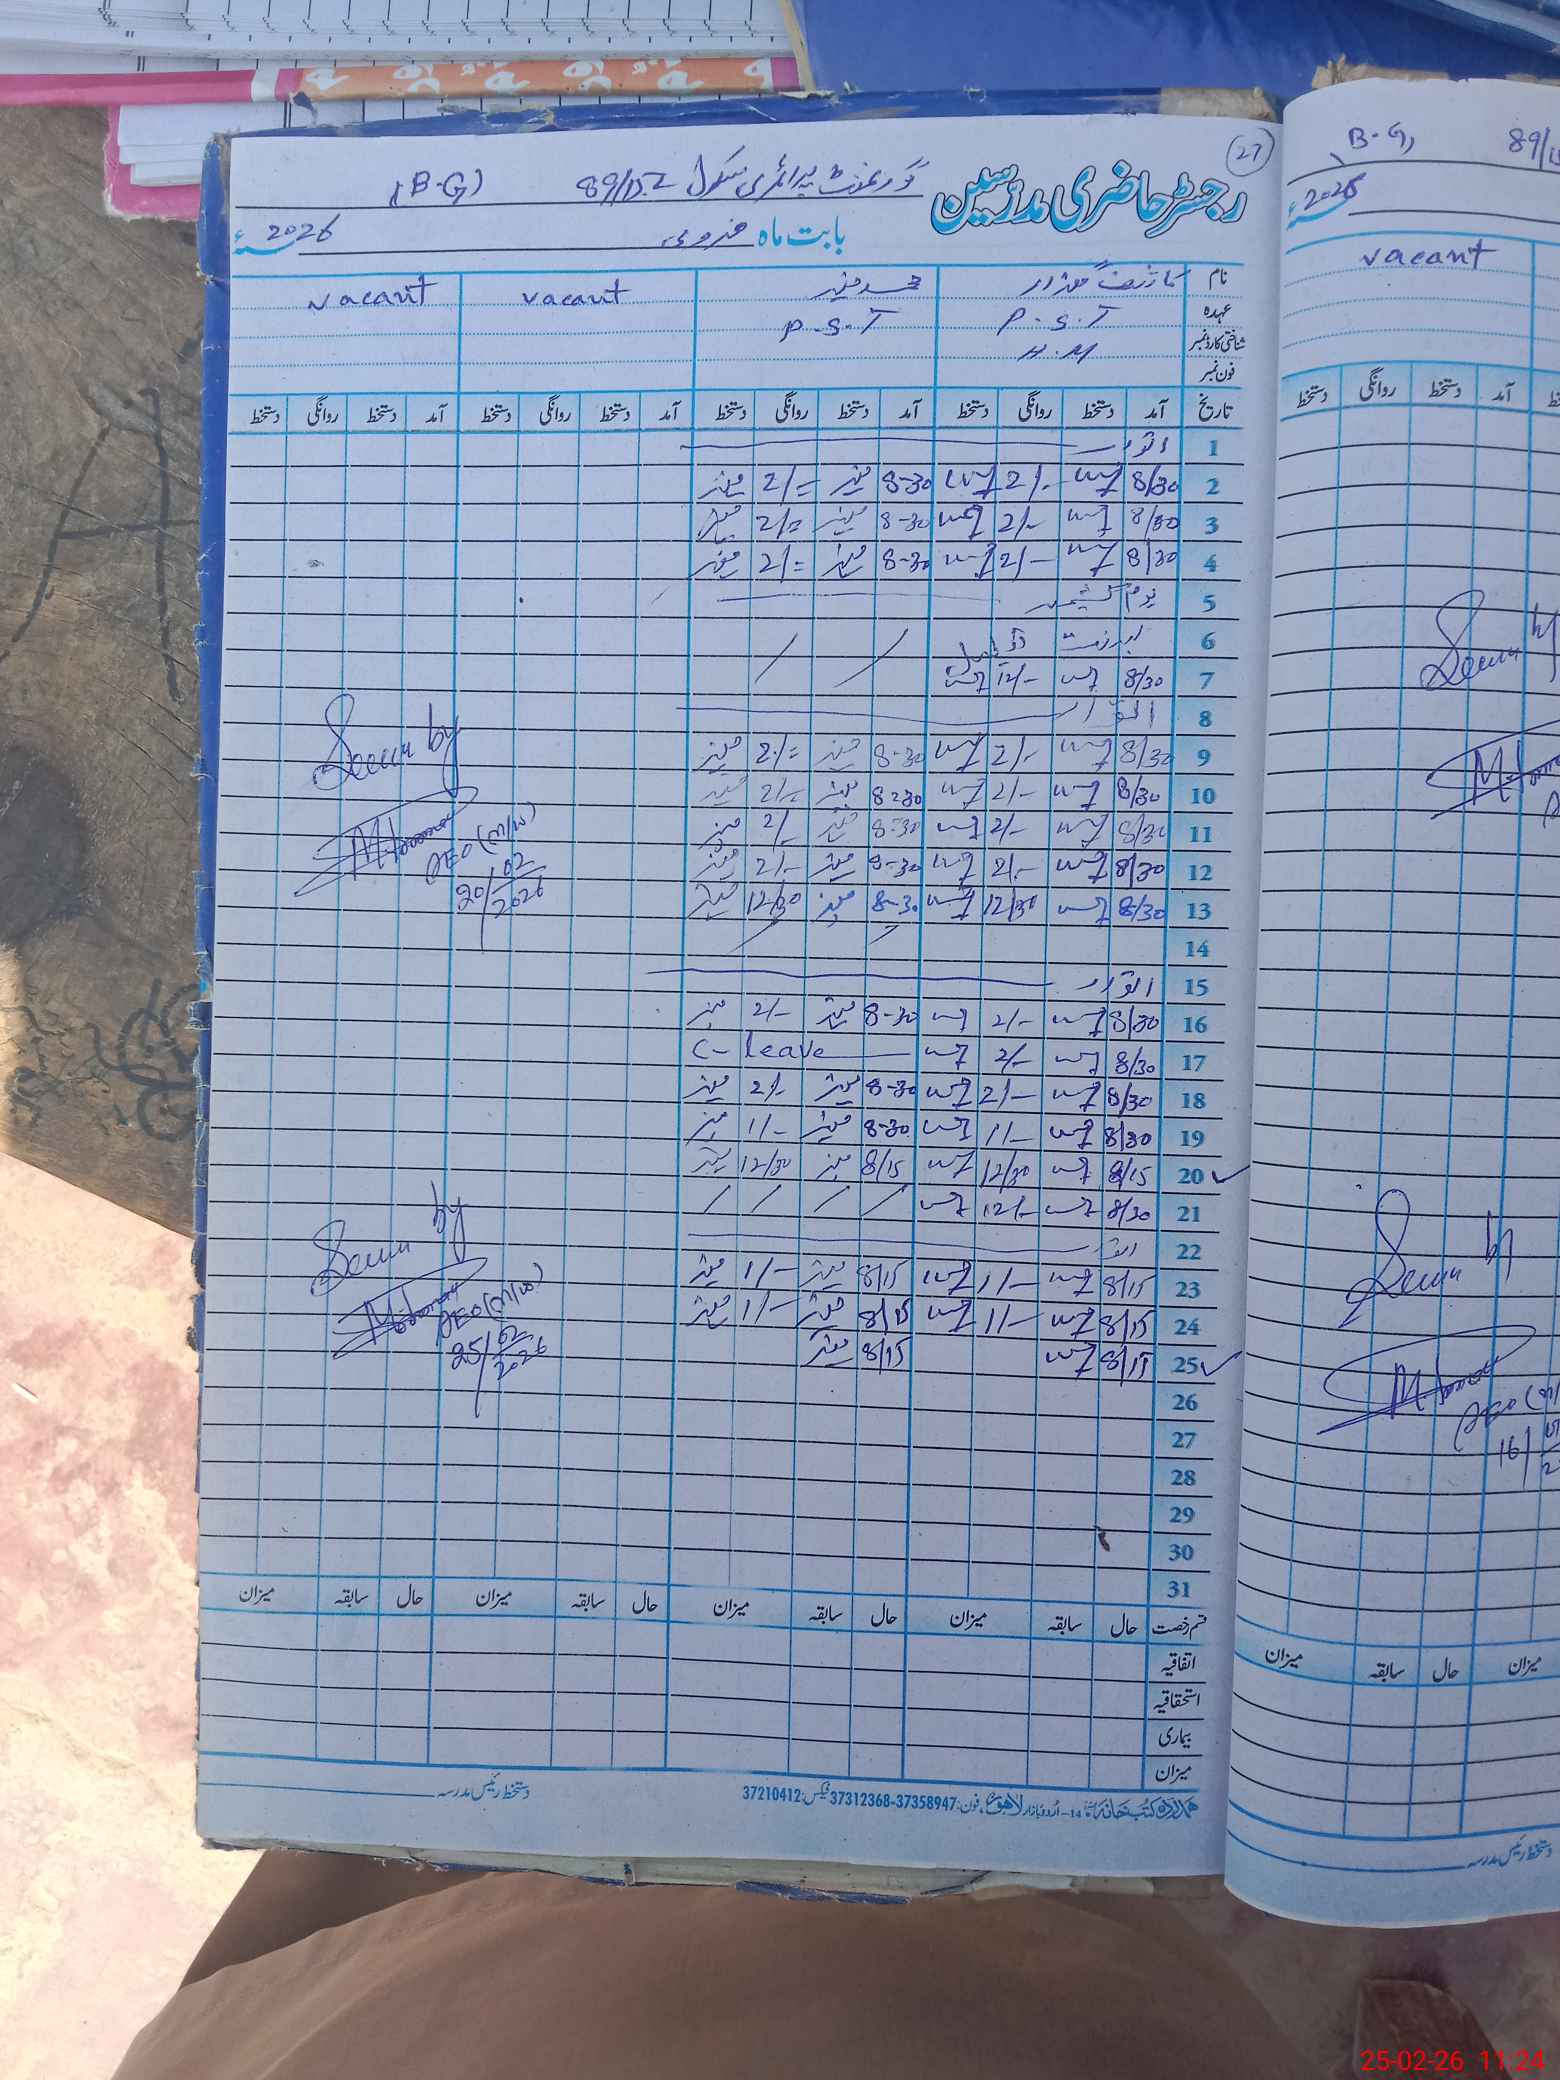 27
رجسٹر حاضری مدرسین گورنمنٹ پرائمری سکول 89/15.L (B-G)
بابت ماہ فروری 2026ء
نام محمد منیر vacant vacant
عہدہ P.S.T P.S.T
شناختی کارڈ نمبر H.M
فون نمبر
تاریخ آمد دستخط روانگی دستخط آمد دستخط روانگی دستخط آمد دستخط روانگی دستخط آمد دستخط روانگی دستخط
1 اتوار
2 8/30 2/- 8-30 منیر 2/= منیر
3 8/30 2/- 8-30 منیر 2/= منیر
4 8/30 2/- 8-30 منیر 2/= منیر
5 یوم کشمیر
6
7 8/30 12/-
8 اتوار
9 8/30 2/- 8-30 منیر 2/= منیر
10 8/30 2/- 8-30 منیر 2/- منیر
11 8/30 2/- 8-30 منیر 2/- منیر
12 8/30 2/- 8-30 منیر 2/- منیر
13 8/30 12/30 8-30 منیر 12/30 منیر
14
15 اتوار
16 8/30 2/- 8-30 منیر 2/- منیر
17 8/30 2/- C-leave
18 8/30 2/- 8-30 منیر 2/- منیر
19 8/30 1/- 8-30 منیر 1/- منیر
20 8/15 12/30 8/15 منیر 12/30 منیر
21 8/30 12/-
22 اتوار
23 8/15 1/- 8/15 منیر 1/- منیر
24 8/15 1/- 8/15 منیر 1/- منیر
25 8/15 8/15 منیر
26
27
28
29
30
31
Seen by
AEO (M/W)
20/02/2026
Seen by
AEO (M/W)
25/02/2026
قسم رخصت حال سابقہ میزان حال سابقہ میزان حال سابقہ میزان حال سابقہ میزان
اتفاقیہ
استحقاقیہ
بیماری
میزان
ہمدرد کتب خانہ 14-اردو بازار لاہور، فون: 37358947-37312368 فیکس: 37210412 دستخط رئیس مدرسہ
(B-G) 89/15
2026ء
vacant
دستخط روانگی دستخط آمد
Seen by
Seen by
AEO
16
میزان سابقہ حال میزان
دستخط رئیس مدرسہ
25-02-26 11:24